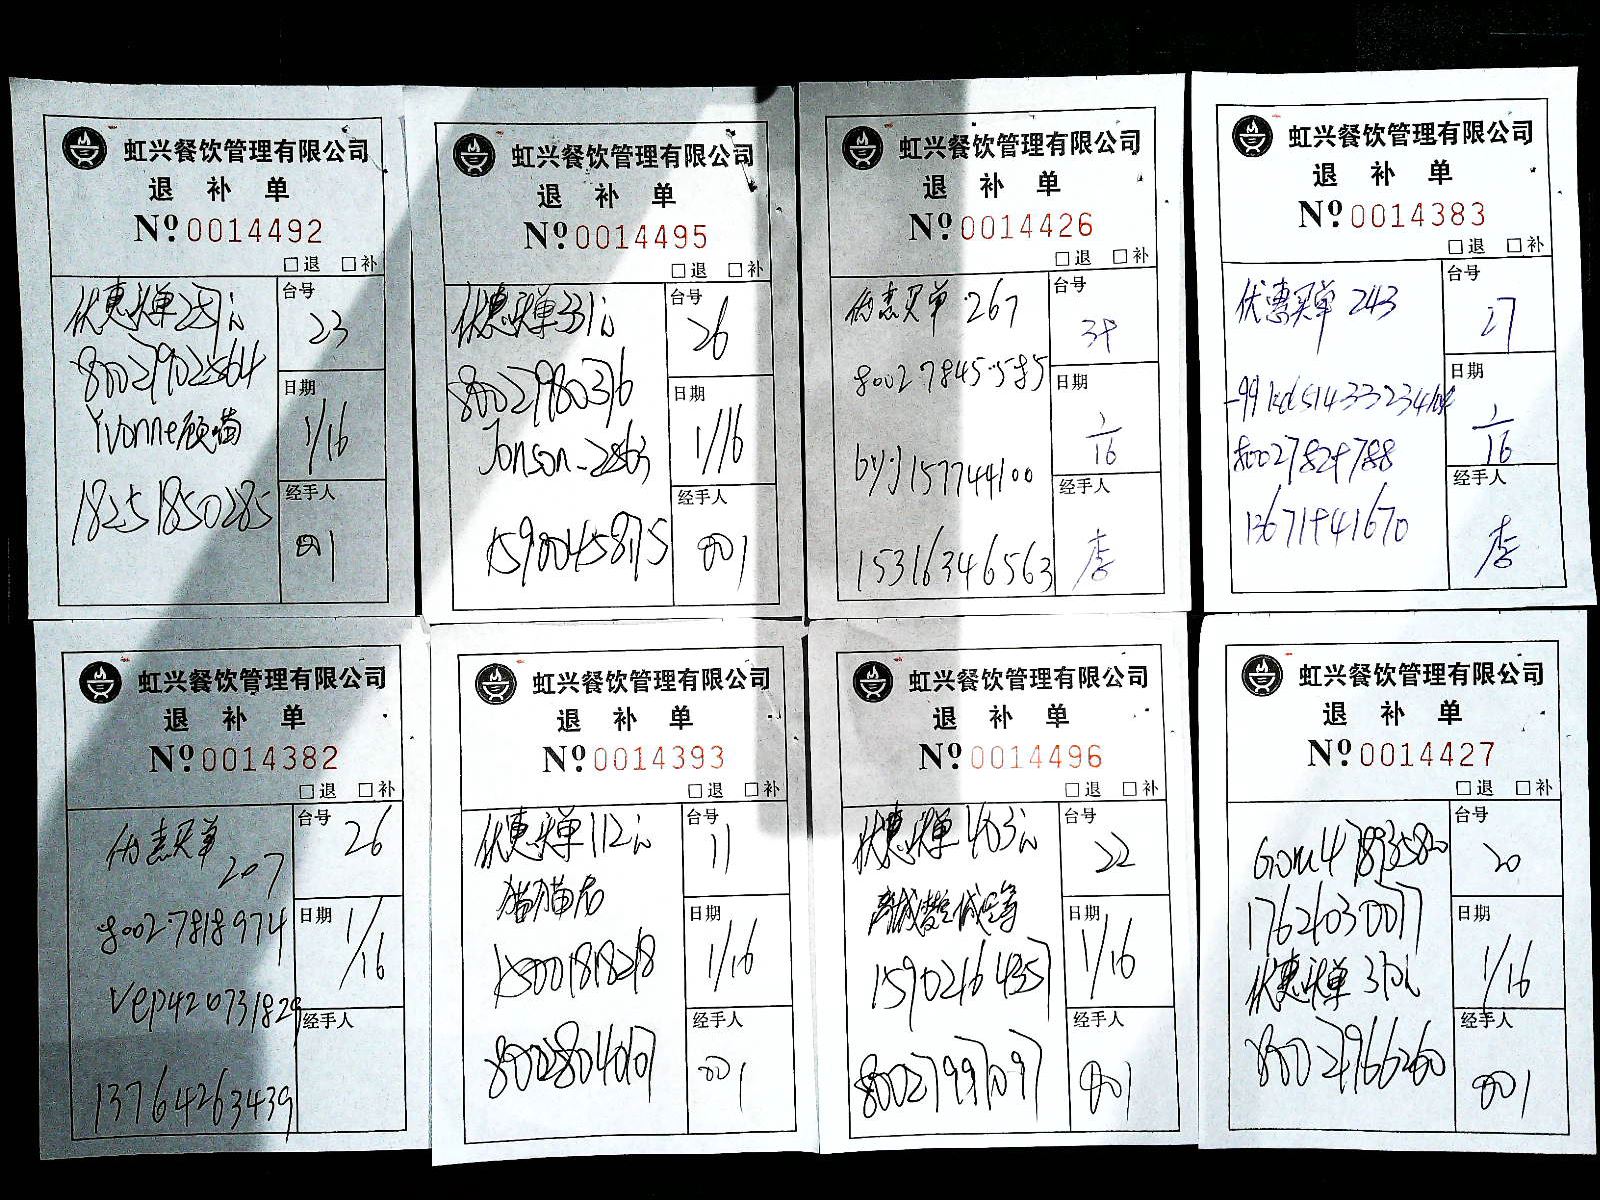 虹兴餐饮管理有限公司
退 补 单
Nº 0014492
□退 □补
优惠买单251元
台号
23
80027902564
日期
1/16
Yvonne顾苗
经手人
18251850285
001
虹兴餐饮管理有限公司
退 补 单
Nº 0014495
□退 □补
优惠买单331元
台号
26
80027980376
日期
1/16
Jonson-2863
经手人
15900458715
001
虹兴餐饮管理有限公司
退 补 单
Nº 0014426
□退 □补
优惠买单 267
台号
80027845585
日期
1/16
byj157744100
经手人
15316346563
李
虹兴餐饮管理有限公司
退 补 单
Nº 0014383
□退 □补
优惠买单 243
台号
27
日期
1/16
80027824788
经手人
13671941670
李
虹兴餐饮管理有限公司
退 补 单
Nº 0014382
□退 □补
优惠买单
207
台号
26
80027818974
日期
1/16
vep420731829
经手人
13764263439
虹兴餐饮管理有限公司
退 补 单
Nº 0014393
□退 □补
优惠买单112元
台号
11
猫猫君
日期
1/16
15001818218
经手人
80028040107
001
虹兴餐饮管理有限公司
退 补 单
Nº 0014496
□退 □补
优惠买单403元
台号
22
日期
1/16
15902164357
经手人
80027997097
001
虹兴餐饮管理有限公司
退 补 单
Nº 0014427
□退 □补
台号
20
17621030077
日期
1/16
优惠买单 310元
经手人
80027966260
001